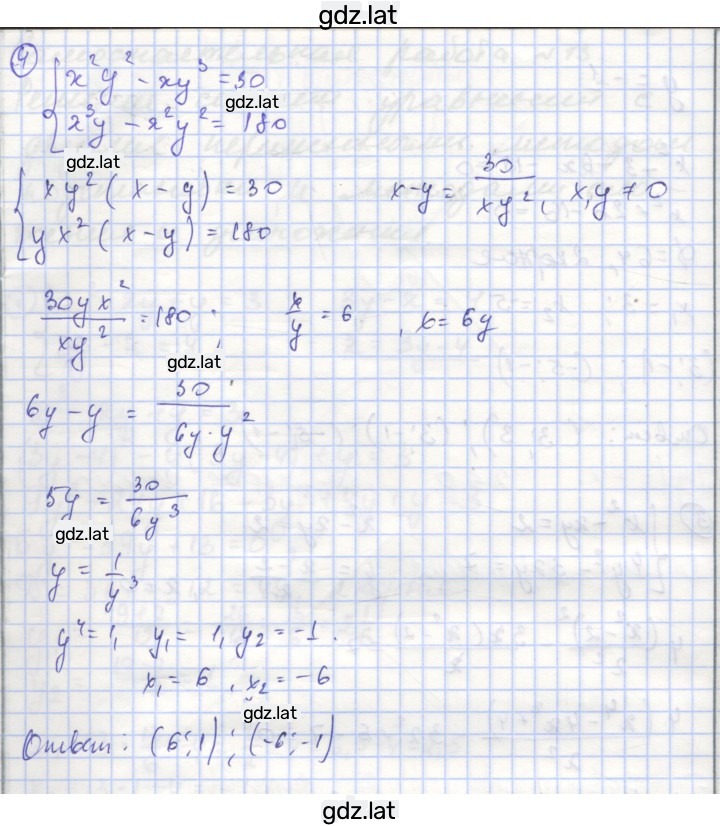 gdz.lat
④
{ x²y² - xy³ = 30
gdz.lat
x³y - x²y² = 180
gdz.lat
{ xy² (x - y) = 30 x - y = 30/xy², x,y ≠ 0
yx² (x - y) = 180
30yx²/xy² = 180; x/y = 6, x = 6y
gdz.lat
6y - y = 30/6y·y²
5y = 30/6y³
gdz.lat
y = 1/y³
y⁴ = 1, y₁ = 1, y₂ = -1.
x₁ = 6, x₂ = -6
gdz.lat
Ответ: (6;1); (-6;-1)
gdz.lat